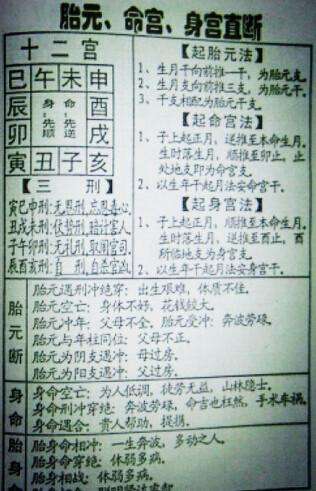 胎元、命宫、身宫直断
十二宫
巳午未申
辰 身:先顺 命:先逆 酉
卯 戌
寅丑子亥
【三 刑】
寅巳申刑:无恩刑,忘恩毒心。
丑戌未刑:仗势刑,暗计害人。
子午卯刑:无礼刑,取闹官司。
辰酉亥刑:自 刑,自杀官战。
【起胎元法】
1、生月干向前推一干,为胎元支。
2、生月支向前推三支,为胎元干。
3、干支相配为胎元干支。
【起命宫法】
1、子上起正月,逆推至本命生月。
生时落生月,顺推至卯止,止
处地支即为命宫支。
2、以生年干起月法安命宫干。
【起身宫法】
1、子上起正月,顺推至本命生月。
生时落生月,逆推至酉止,酉
所临地支为身宫支。
2、以生年干起月法安身宫干。
胎元断
胎元遇刑冲绝穿:出生艰难,体质不佳。
胎元空亡:身体不好,花钱较大。
胎元冲年:父母不全。胎元受冲:奔波劳碌。
胎元与年柱同位:父母不正。
胎元为阴支遇冲:母过房。
胎元为阳支遇冲:父过房。
身命
身命空亡:为人低调,徒劳无益,山林隐士。
身命刑冲穿绝:奔波劳碌,命吉也枉然,手术车祸。
身命遇合:贵人帮助,提携。
胎身命
胎身命相冲:一生奔波,多动之人。
胎身命穿绝:体弱多病。
胎身相战:体弱多病。